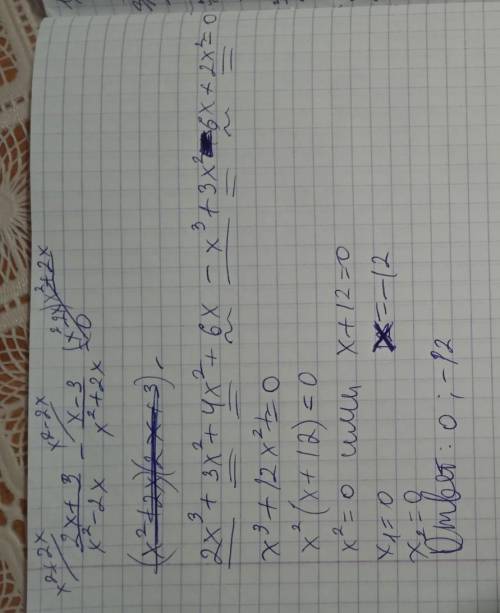 x²+2x x²-2x
2x+3 / x²-2x - x-3 / x²+2x
(x²+2x)(2x+3)
2x³ + 3x² + 4x² + 6x - x³ + 3x² - 6x + 2x² = 0
x³ + 12x² = 0
x² (x + 12) = 0
x² = 0 или x + 12 = 0
x₁ = 0 x = -12
x₂ = 0
Ответ: 0; -12